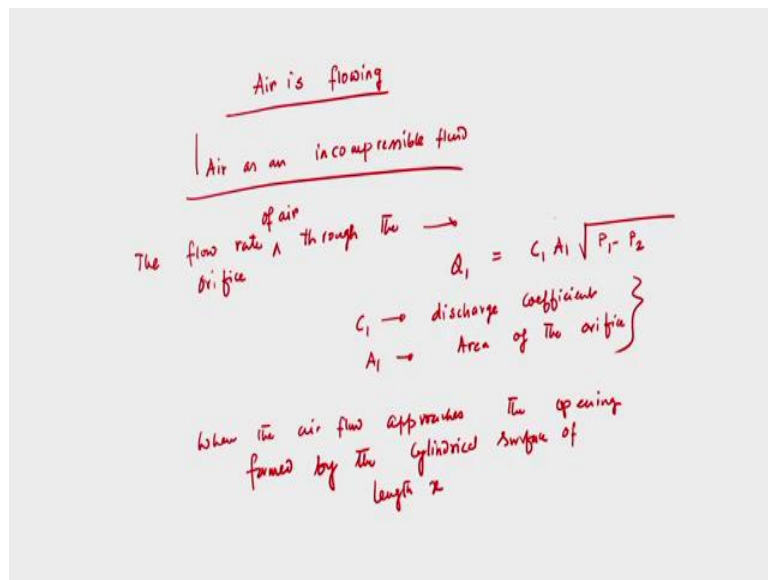 Air is flowing
Air as an incompressible fluid
of air
The flow rate ∧ through the →
orifice
Q₁ = C₁ A₁ √P₁ - P₂
C₁ → discharge coefficient
A₁ → Area of the orifice }
When the air flow approaches the opening
formed by the cylindrical surface of
length x